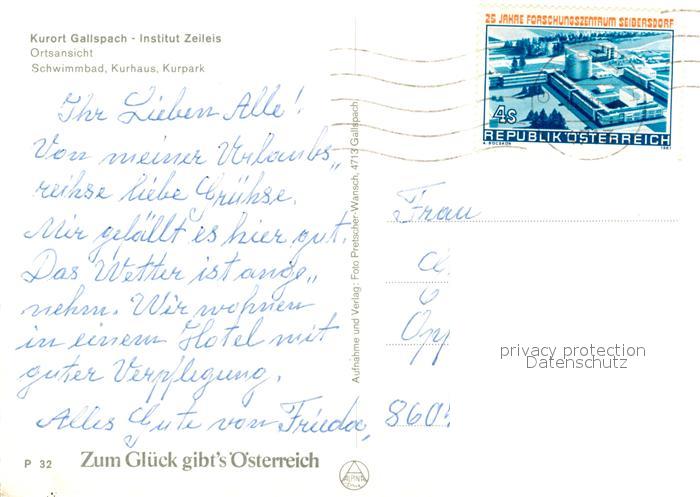 Kurort Gallspach - Institut Zeileis
Ortsansicht
Schwimmbad, Kurhaus, Kurpark
Ihr Lieben Alle!
Von meiner Urlaubs„
reihse liebe Grühse.
Mir gefällt es hier gut.
Das Wetter ist ange„
nehm. Wir wohnen
in einem Hotel mit
guter Verpflegung.
Alles Gute von Frieda,
P 32
Zum Glück gibt's Österreich
ALPINA
Aufnahme und Verlag: Foto Pretscher-Wansch, 4713 Gallspach
25 JAHRE FORSCHUNGSZENTRUM SEIBERSDORF
4S
REPUBLIK ÖSTERREICH
1981
Frau
860
privacy protection
Datenschutz